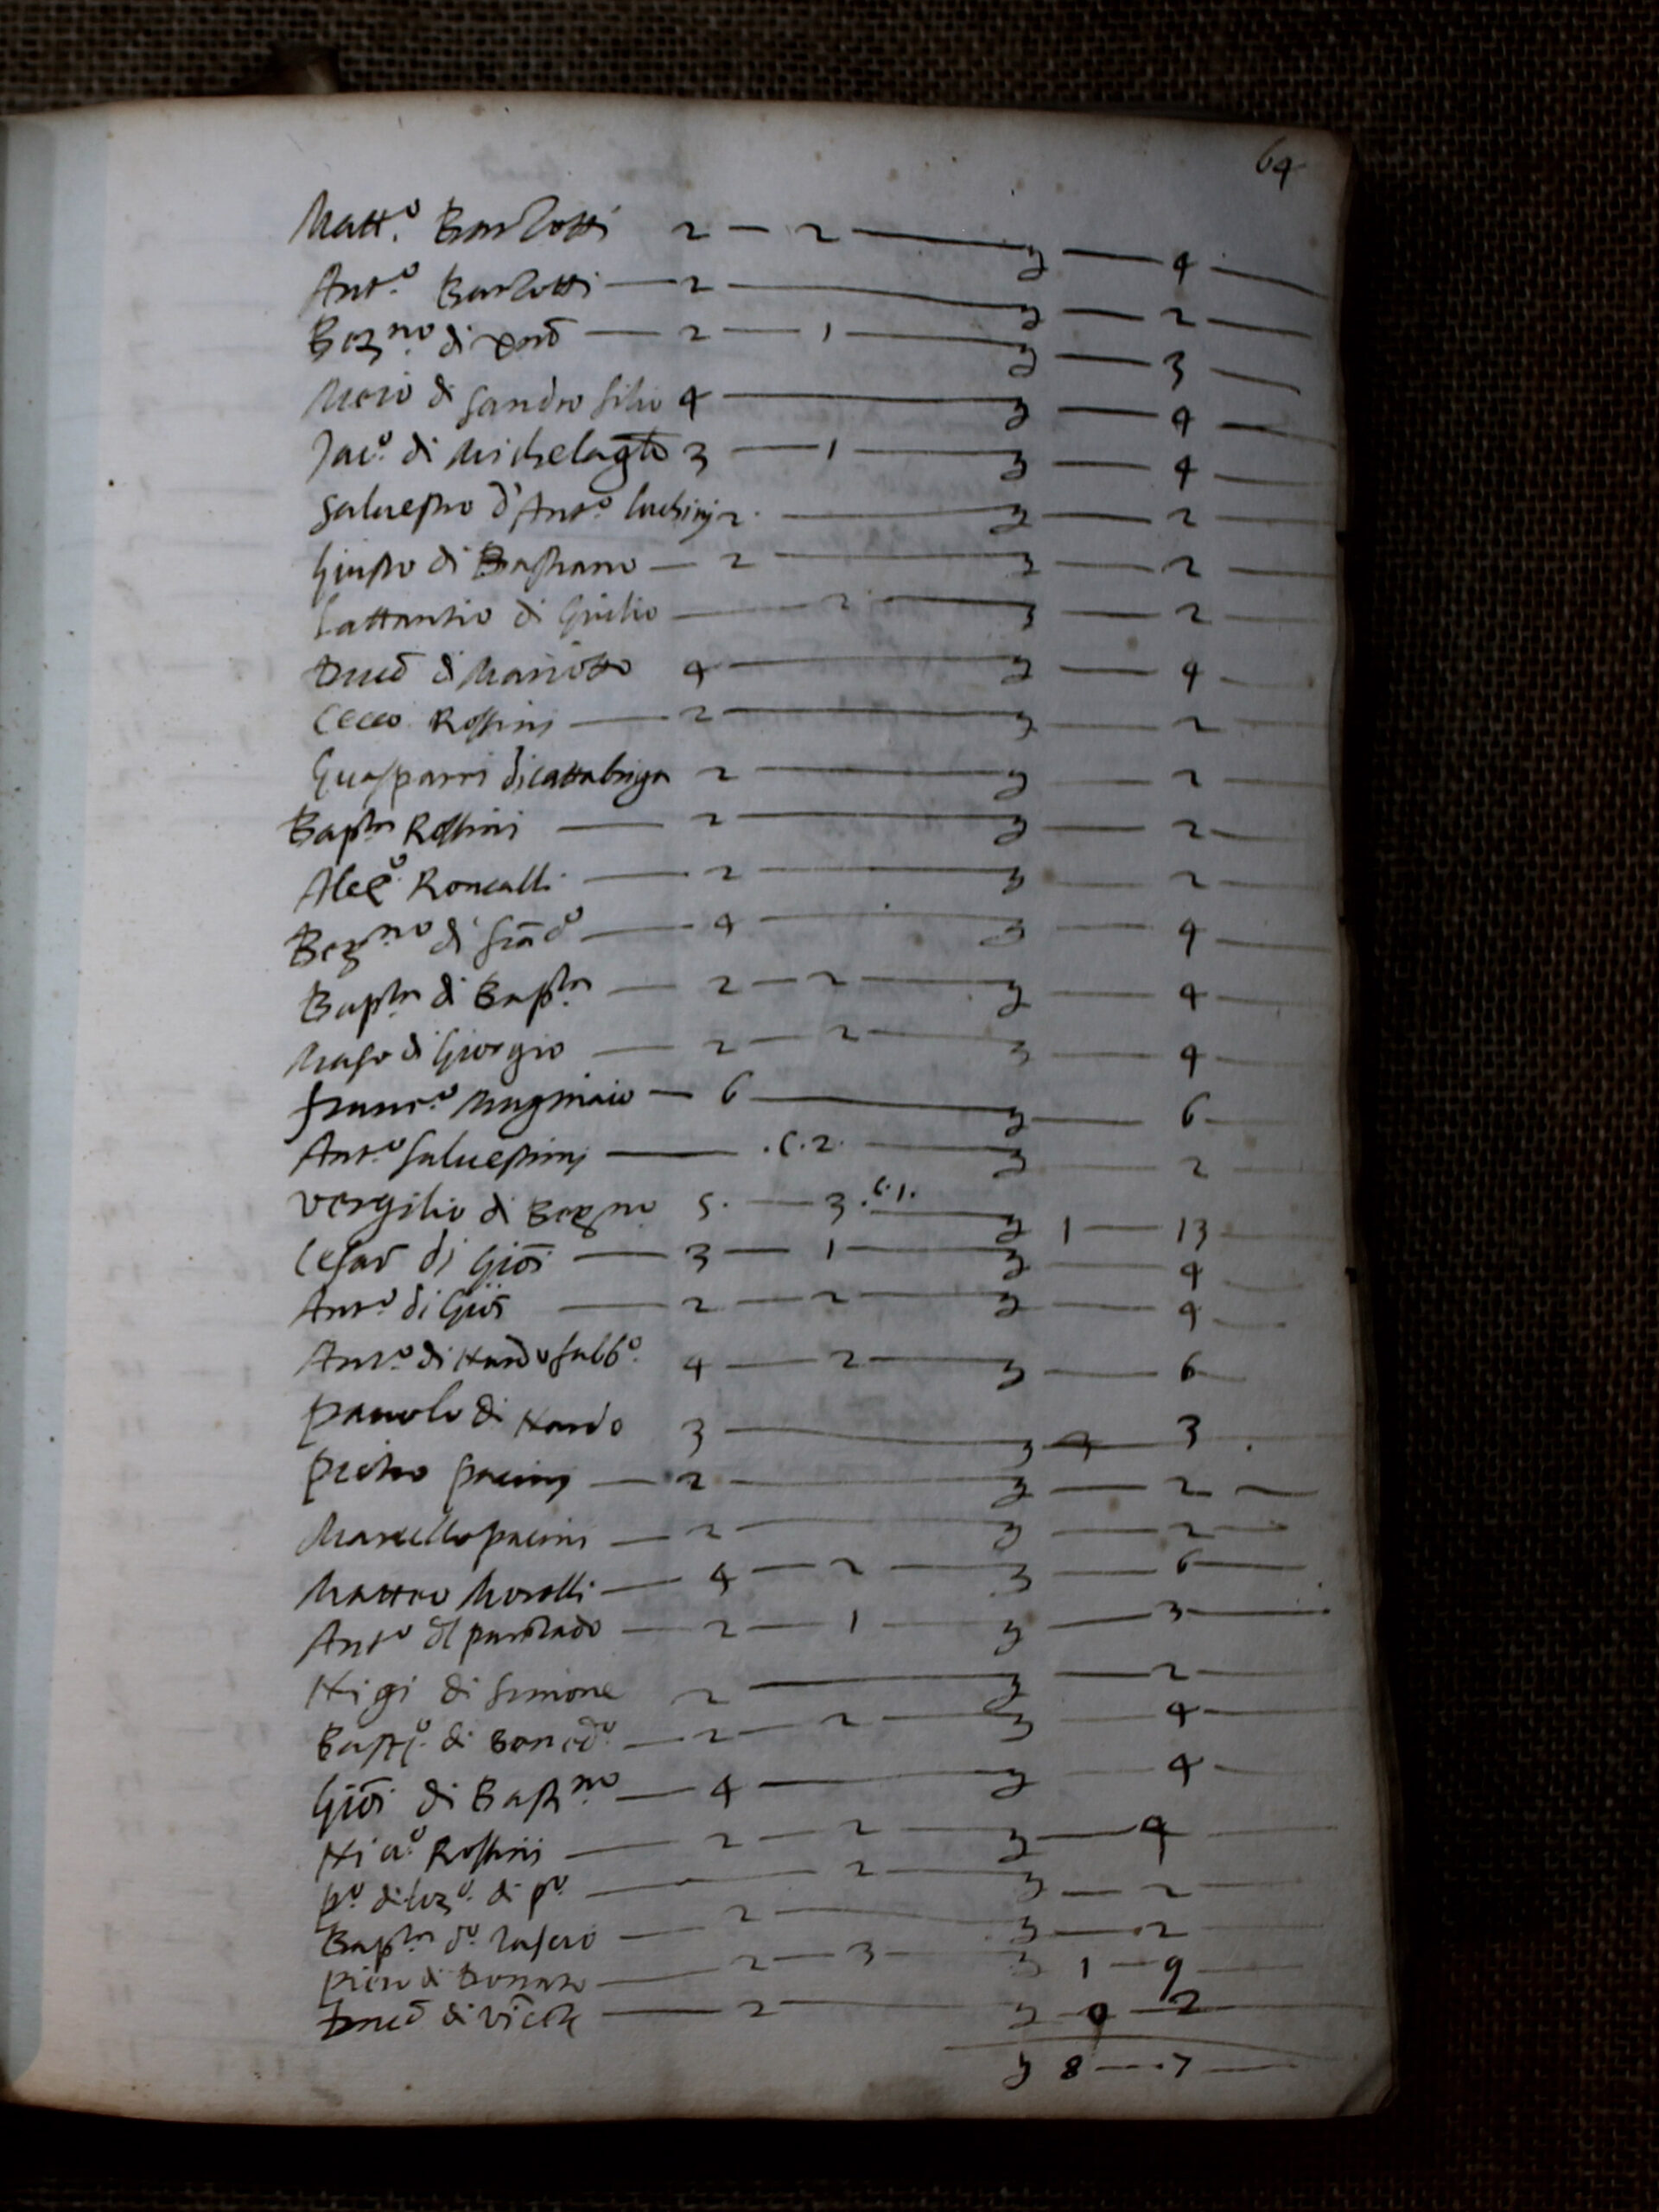 64
Matt.º Barlotti 2 — 2 — 3 — 4 —
Ant.º Barlotti — 2 — 3 — 2 —
di — 2 — 1 — 3 — 3 —
Meio di Sandro 4 — 3 — 4 —
Jac.º di Michelagto 3 — 1 — 3 — 4 —
Salvestro d'Ant.º luchinj 2 — 3 — 2
Giusto di Bastiano — 2 — 3 — 2 —
Lattantio di Giulio — 2 — 3 — 2 —
Dnicō di Mariotto 4 — 3 — 4 —
Cecco Rossini — 2 — 3 — 2
Guasparri di cattabriga 2 — 3 — 2 —
Bapta Rossini — 2 — 3 — 2 —
Aleº Roncalli — 2 — 3 — 2
di — 4 — 3 — 4 —
Bapta di Bapta — 2 — 2 — 3 — 4 —
Maso di Giorgio — 2 — 2 — 3 — 4
franc.º Mugniaio — 6 — 3 — 6 —
Ant.º Salvestrinj — .C.2. — 3 — 2 —
Vergilio di 5. — 3. C.1. — 3 1 — 13 —
Cesarē di Giōi — 3 — 1 — 3 — 4
Ant.º di Giōi — 2 — 2 — 3 — 4
Ant.º di Nardo 4 — 2 — 3 — 6
pauolo di Nardo 3 — 3 — 3
Pietro pacinj — 2 — 3 — 2 —
Marcello pacini — 2 — 3 — 2 —
Matteo Morelli — 4 — 2 — 3 — 6 —
Ant.º — 2 — 1 — 3 — 3 —
Nigi di Simone 2 — 3 — 2 —
di — 2 — 2 — 3 — 4 —
Giōi di Bastno — 4 — 3 — 4 —
Rossini — 2 — 2 — 3 — 4
pº di lorzº di pº — 2 — 3 — 2 —
Bapta — 2 — 3 — 2
Piero di Donato — 2 — 3 — 3 1 — 9 —
Dnicō di — 2 — 3 — 0 — 2
3 8 — 7 —